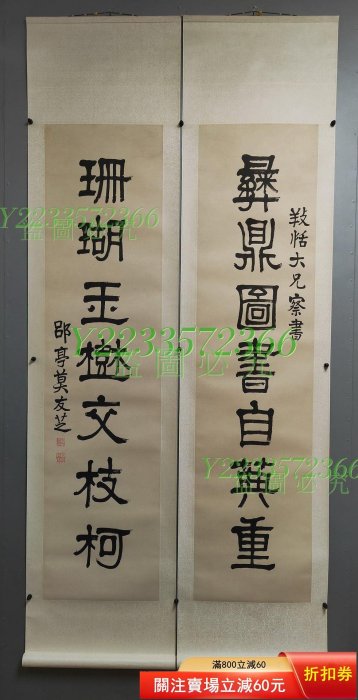 彝鼎圖書自典重
敉恬大兄察書
珊瑚玉樹交枝柯
郘亭莫友芝
Y2233572366
盜圖必究
Y2233572366
盜圖必究
Y2233572366
盜圖必究
滿800立減60
關注賣場立減60元
折扣券